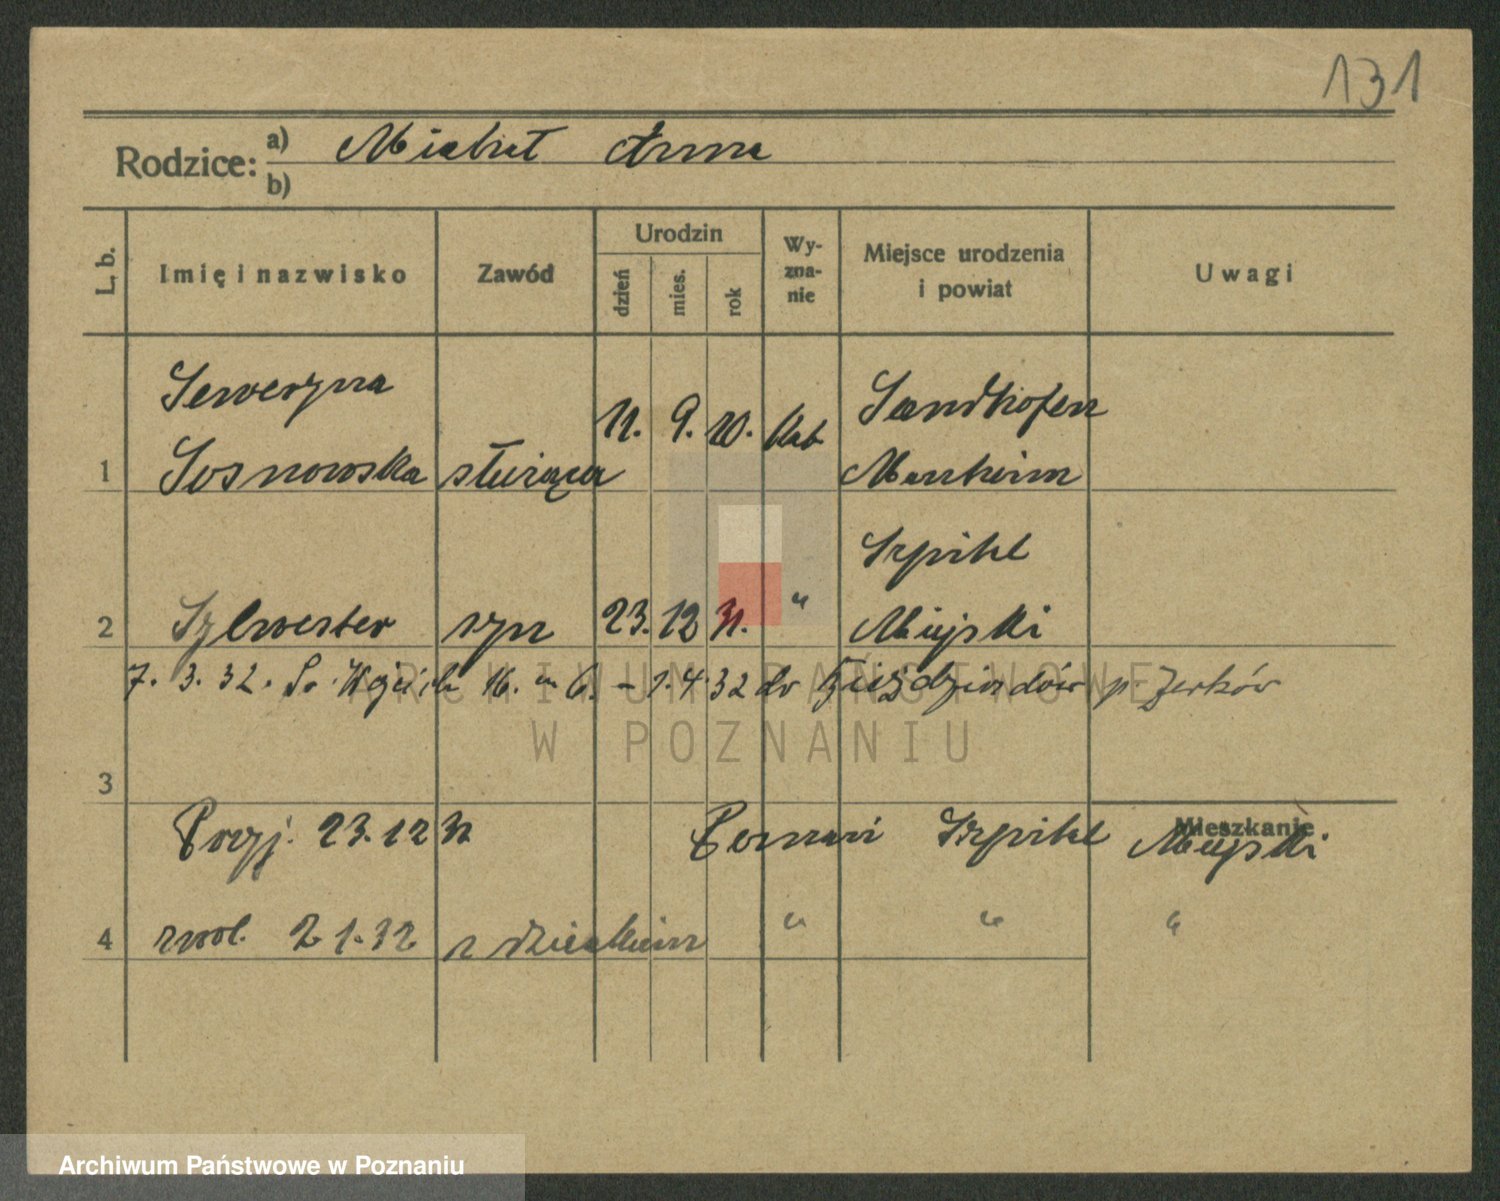 131
Rodzice: a) Michał Anna
b)
L. b. Imię i nazwisko Zawód Urodzin dzień mies. rok Wy-zna-nie Miejsce urodzenia i powiat Uwagi
Seweryna Sandhofen
1 Sosnowska służąca 11. 9. 10. kat Manheim
Szpital
2 Sylwester syn 23. 12 31. " Miejski
7. 3. 32. Św. Wojciech 16. m 6. – 1. 4. 32 do p. Żerków
3
Przyj. 23. 12 31 Szpital Miejski
Mieszkanie
4 zwol. 2 1. 32 z dzieckiem " " "
ARCHIWUM PAŃSTWOWE
W POZNANIU
Archiwum Państwowe w Poznaniu